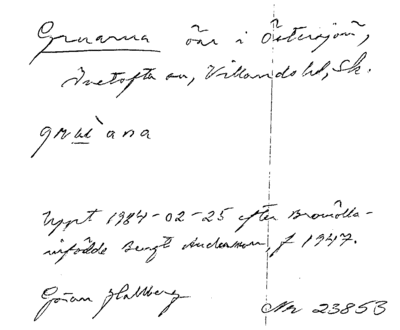 Gruarna öar i Östersjön,
Ivetofta sn, Villands hd, Sk.
gruàna
Uppt 1984-02-25 efter Bromölla-
infödde Bengt Andersson, f 1947.
Göran Hallberg
Nr 23853